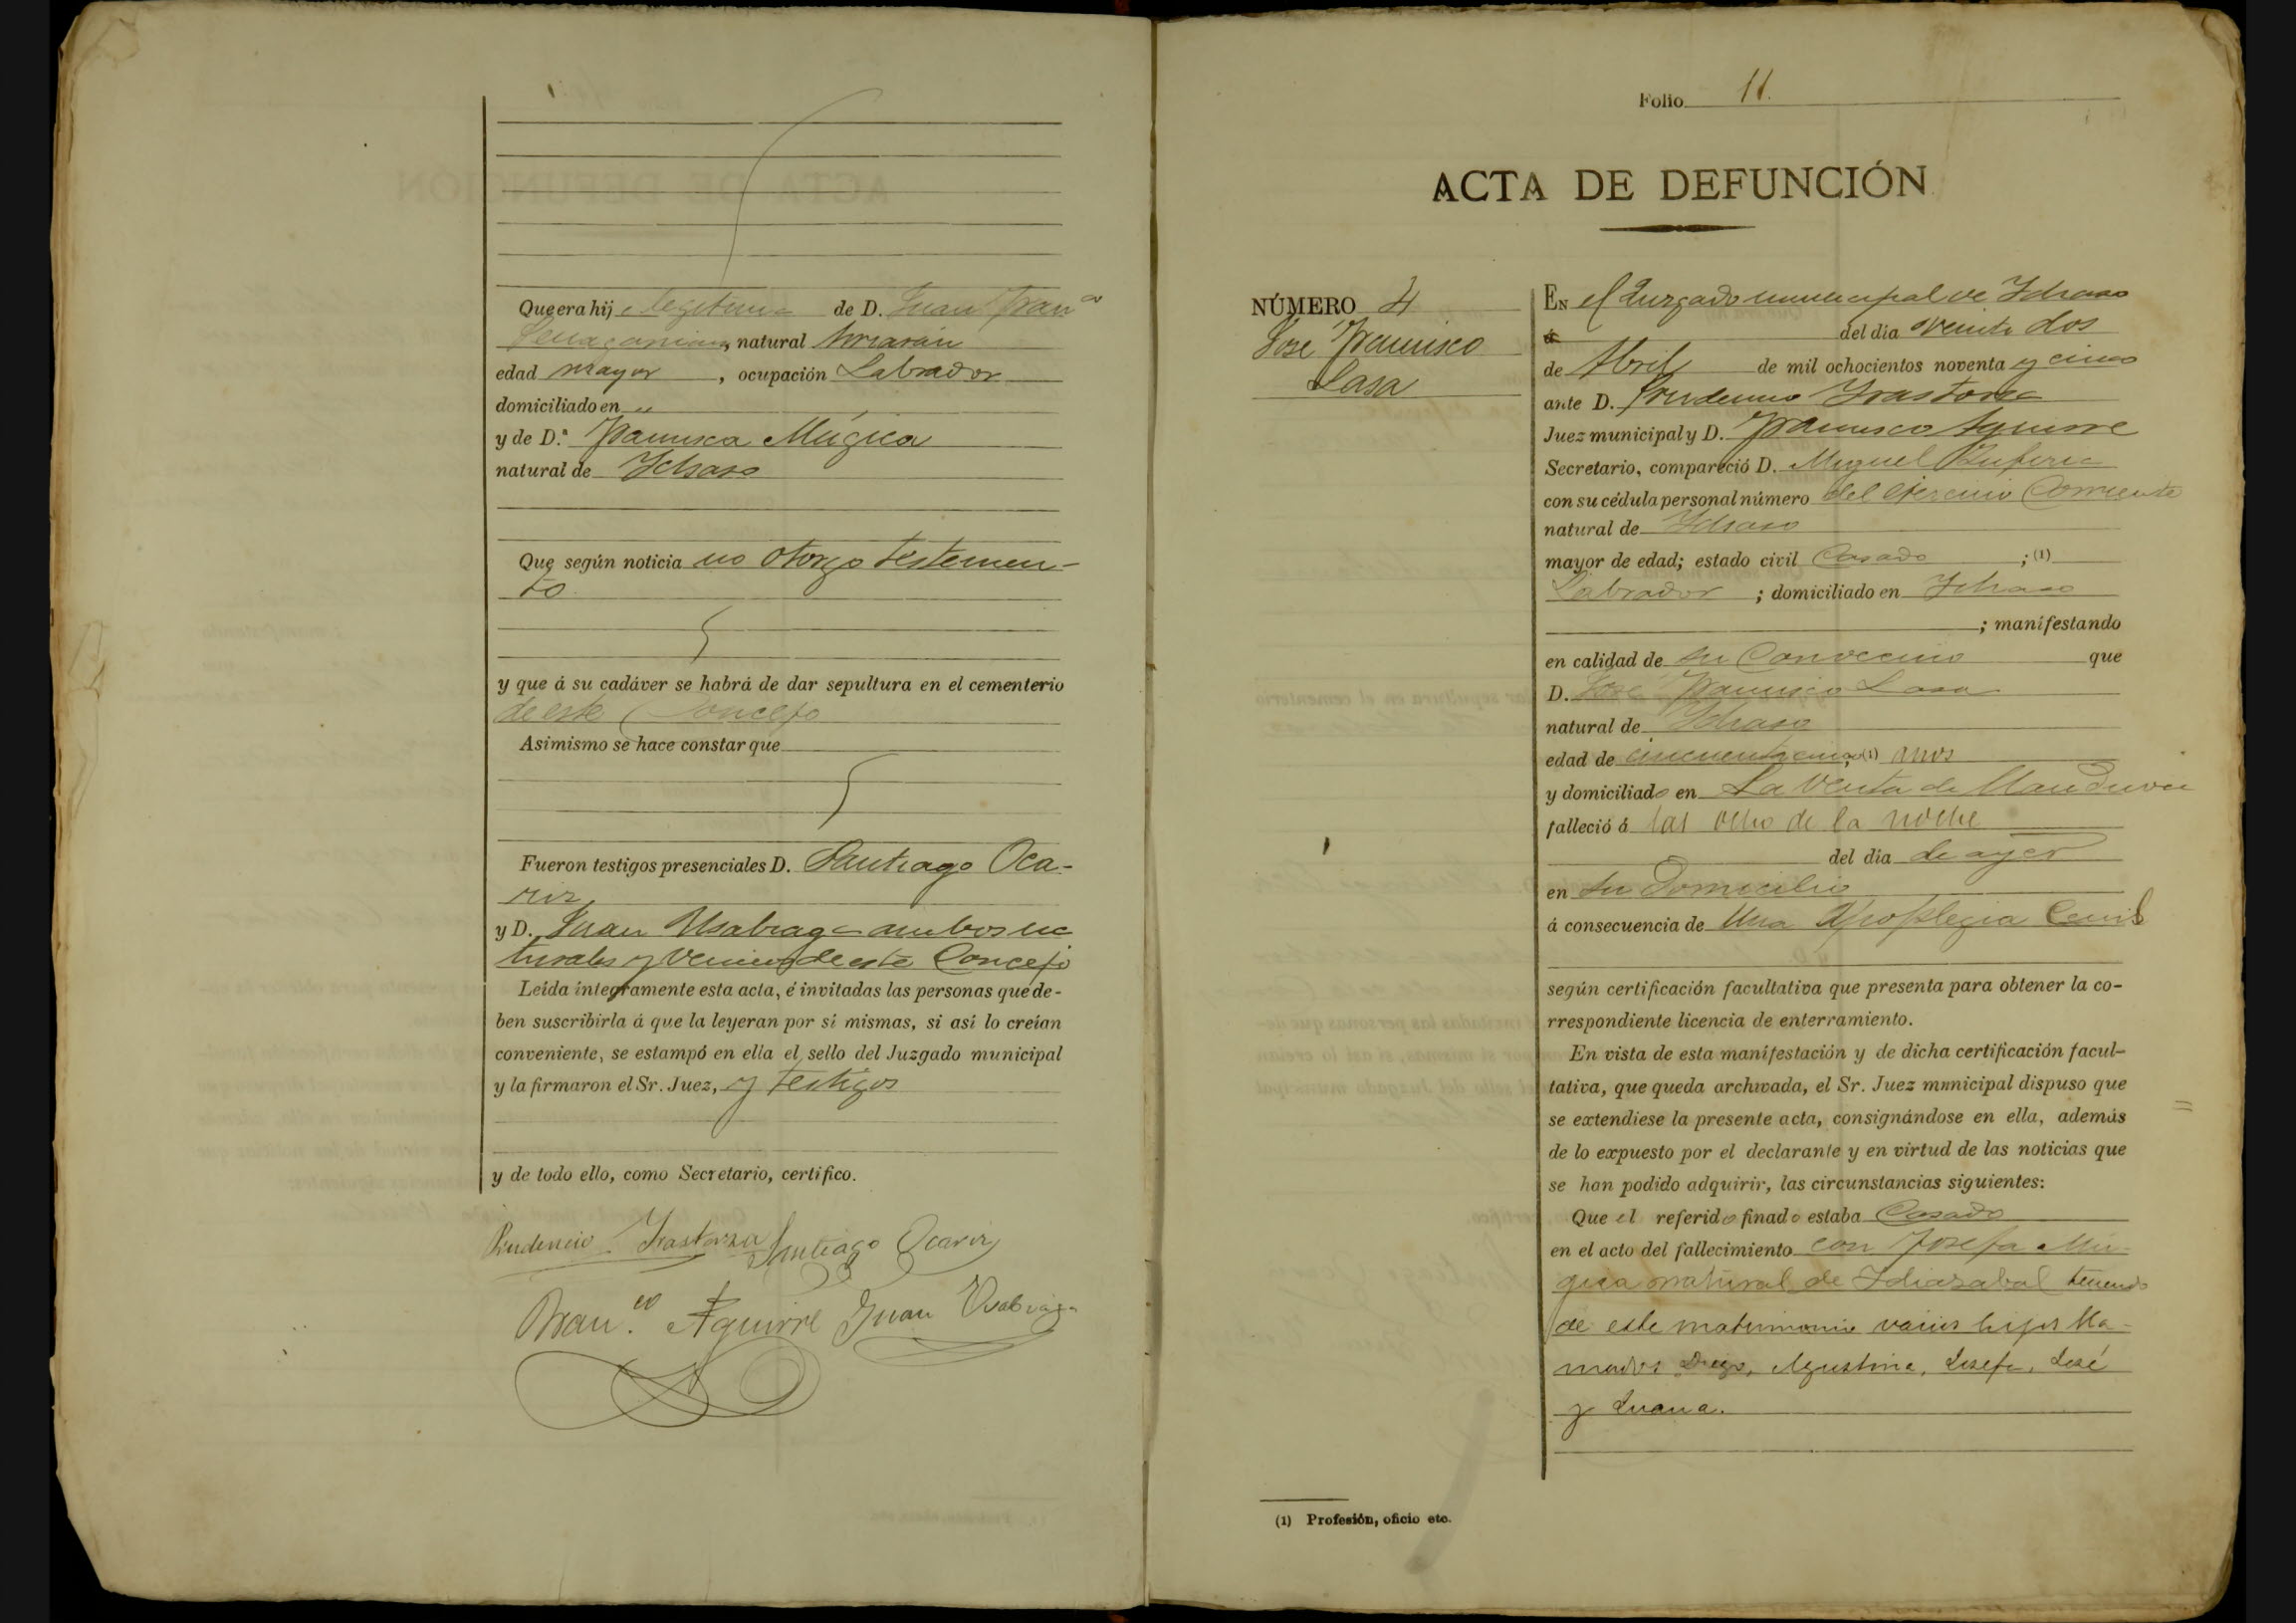 Que era hija legitima de D. Juan Fran.co
, natural Arriarán
edad mayor , ocupación Labrador
domiciliado en "
y de D.ª Francisca Múgica
natural de Ichaso
Que según noticia no otorgo testemen-
to
y que á su cadáver se habrá de dar sepultura en el cementerio
de este Concejo
Asimismo se hace constar que
Fueron testigos presenciales D. Santiago Oca-
riz
y D. Juan Usabiaga ambos na
turales y vecinos de este Concejo
Leída íntegramente esta acta, é invitadas las personas que de-
ben suscribirla á que la leyeran por sí mismas, si así lo creían
conveniente, se estampó en ella el sello del Juzgado municipal
y la firmaron el Sr. Juez, y testigos
y de todo ello, como Secretario, certifico.
Prudencio Irastorza Santiago Ocariz
Fran.co Aguirre Juan Usabiaga
Folio 11.
ACTA DE DEFUNCIÓN
NÚMERO 4
José Francisco
Lasa
EN el Juzgado municipal de Ichaso
á del día veinte dos
de Abril de mil ochocientos noventa y cinco
ante D. Prudencio Irastorza
Juez municipal y D. Francisco Aguirre
Secretario, compareció D. Miguel
con su cédula personal número del ejercicio Corriente
natural de Ichaso
mayor de edad; estado civil Casado ; (1)
Labrador ; domiciliado en Ichaso
; manifestando
en calidad de su Convecino que
D. José Francisco Lasa
natural de Ichaso
edad de cincuenticinco, (1) años
y domiciliado en La Venta de
falleció á las ocho de la noche
del día de ayer
en su Domicilio
á consecuencia de Una
según certificación facultativa que presenta para obtener la co-
rrespondiente licencia de enterramiento.
En vista de esta manifestación y de dicha certificación facul-
tativa, que queda archivada, el Sr. Juez municipal dispuso que
se extendiese la presente acta, consignándose en ella, además
de lo expuesto por el declarante y en virtud de las noticias que
se han podido adquirir, las circunstancias siguientes:
Que el referido finado estaba Casado
en el acto del fallecimiento con Josefa Mú-
gica natural de Idiazabal teniendo
de este matrimonio varios hijos lla-
mados Diego, Agustina, Josefa, José
y Juana.
(1) Profesión, oficio etc.